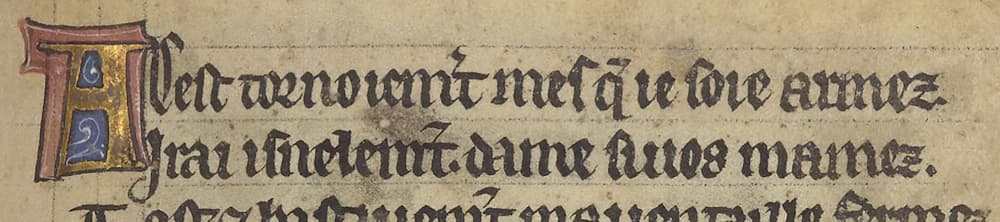 A Cest tornoiem̃t mes q̃ ie soie armez.
Irai isnelem̃t. dame si uos mamez.